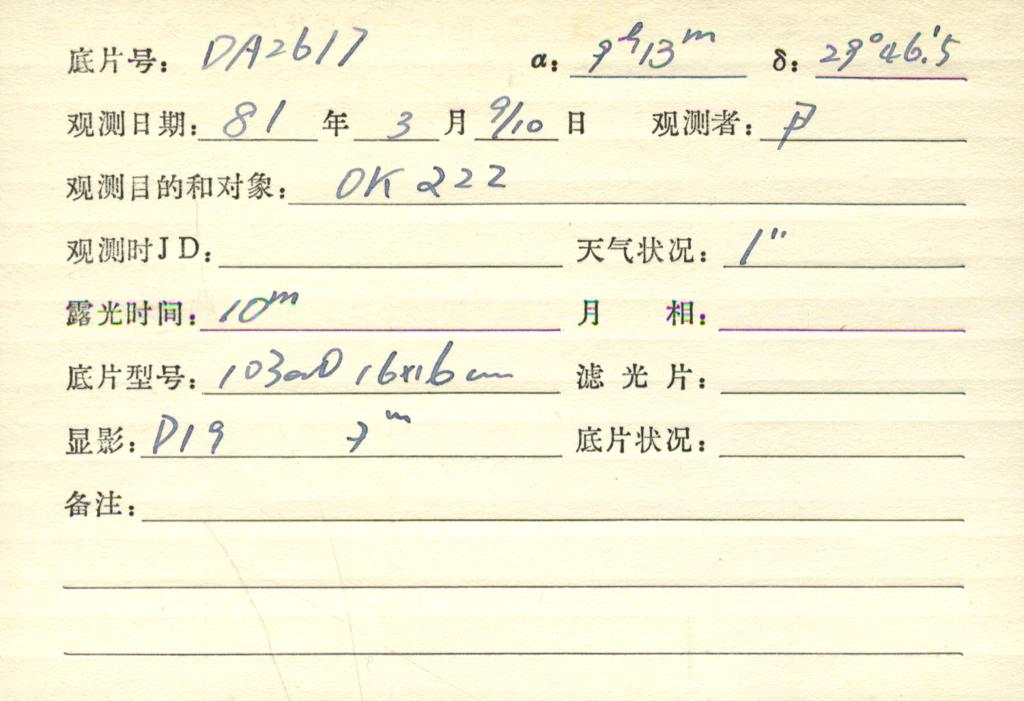 底片号: DA2617 α: 9ʰ13ᵐ δ: 29°46.'5
观测日期: 81 年 3 月 9/10 日 观测者:
观测目的和对象: OK 222
观测时JD: 天气状况: 1"
露光时间: 10ᵐ 月 相:
底片型号: 103aD 16x16cm 滤光片:
显影: D19 7ᵐ 底片状况:
备注: